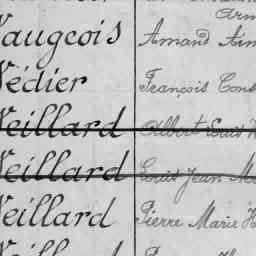 Arm
Vaugeois Amand Am
Védier François Cons
Veillard Albert Louis H
Veillard Louis Jean Ma
Veillard Pierre Marie H